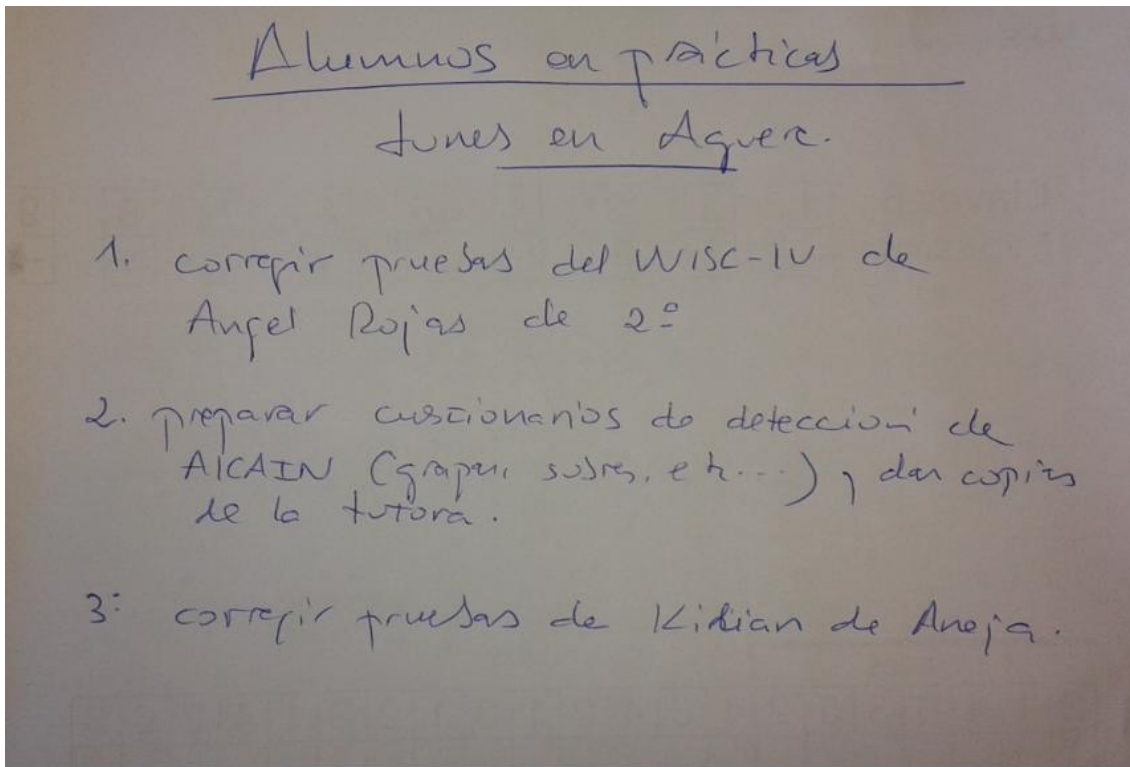 Alumnos en prácticas
Lunes en Aguere.
1. corregir pruebas del WISC-IV de
Angel Rojas de 2º
2. preparar cuestionarios de detección de
AICAIN (grapar, sobres, etc...) y dar copias
de la tutora.
3: corregir pruebas de Kilian de Aneja.